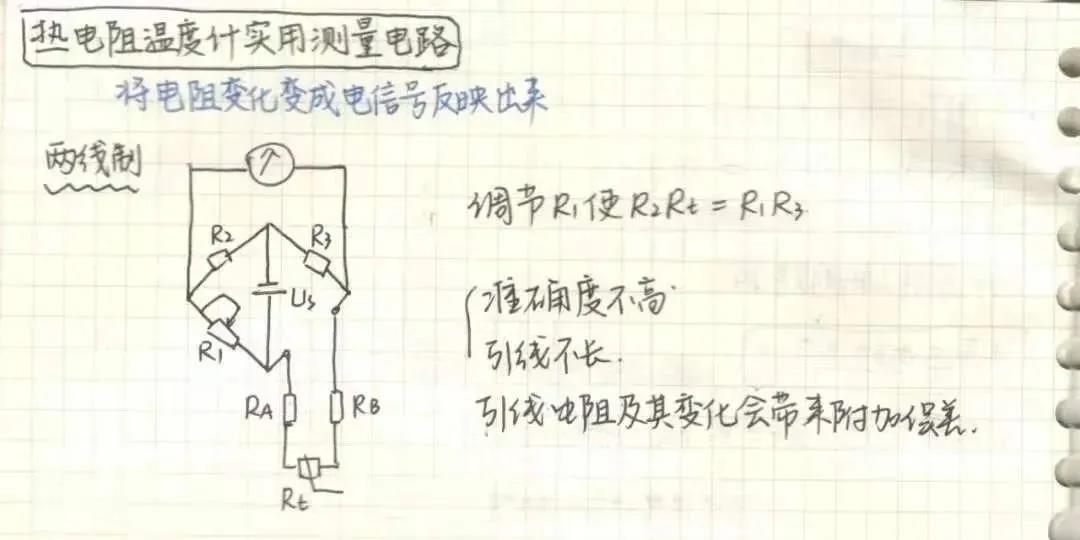 热电阻温度计实用测量电路
将电阻变化变成电信号反映出来
两线制
R2
R3
Us
R1
RA
RB
Rt
调节R1使R2Rt=R1R3
准确度不高
引线不长.
引线电阻及其变化会带来附加误差.